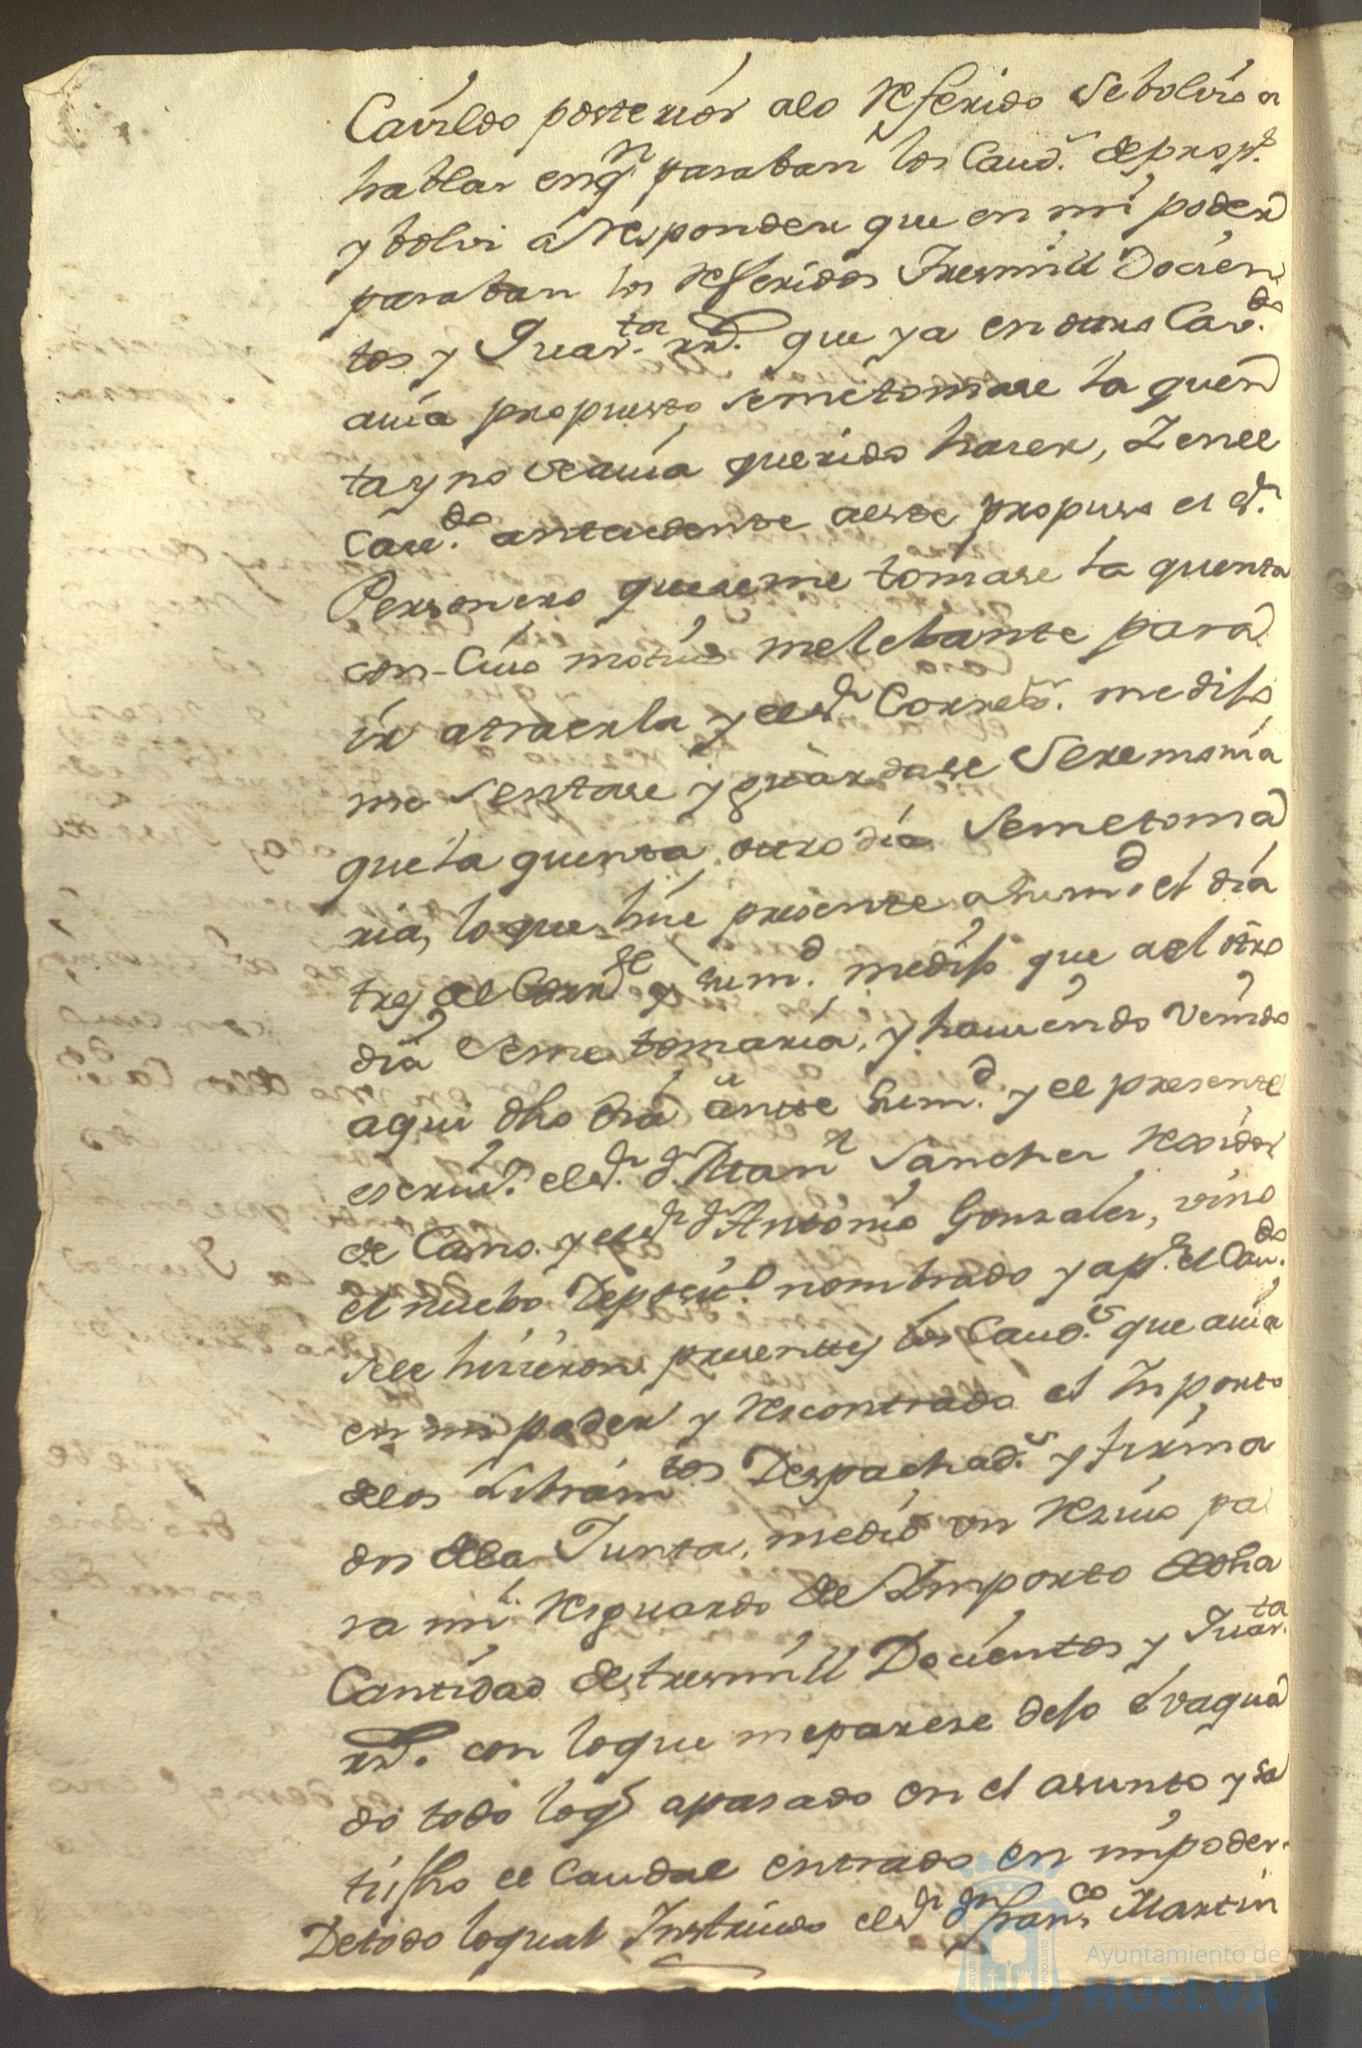 Cavildo posterior alo referido sebolvio a
hablar en qn paraban los Caud.s de prop.s
y bolvi a responder que en mi poder
paraban los referidos tresmill Docien
tos y Quar.ta rr.s que ya en otro Cav.do
avia propuesto semetomase la quen
ta y no seavia querido haser, Y en el
Cau.do antecedente aeste propuso el S.r
Personero quese me tomase la quenta
con cuio motivo melebante para
ir atraerla y el S.r Corre.or medijo
me sentase y guardase Seremonia
que la quenta otro dia Semetoma
ria, lo que hise presente a Sum.d el dia
tres del Corr.te y sum.d medijo que a el otro
dia Seme tomaria, y haviendo venido
aqui dho dia ante Sum.d y el presente
escriv.o el S.r d.n Man.l Sanches Rexidor
de Cano. y el S.r d.n Antonio Gonzales, vino
el nuebo Deposit.o nombrado y ap.r el Cau.do
sele hisieron presentes los Caud.s que avia
en mi poder y recontrado el Inporto
delos Libram.tos Despachad.s y firma
dos dela Junta, medio un resivo pa
ra mi resguardo del Importo de dha
Cantidad de tresmill Docientos y Quar.ta
rr.s con loque meparese dejo evagua
do todo loq apasado en el asunto y sa
tisfho el Caudal entrado en mi poder.
Detodo loqual Instruido el S.r d.n Fran.co Martin
Ayuntamiento de
HUELVA